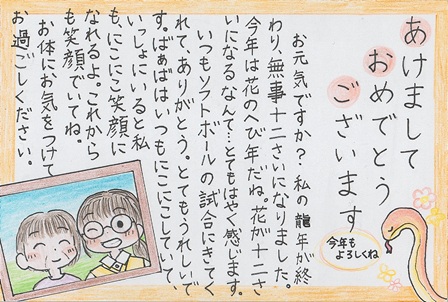 あけまして
おめでとう
ございます
お元気ですか?私の龍年が終
わり、無事十二さいになりました。
今年は花のへび年だね。花が十二さ
いになるなんて…とてもはやく感じます。
いつもソフトボールの試合にきてく
れて、ありがとう。とてもうれしいで
す。ばぁばはいつもにこにこしていて、
いっしょにいると私
も、にこにこ笑顔に
なれるよ。これから
も笑顔でいてね。
お体にお気をつけて
お過ごしください。
今年も
よろしくね